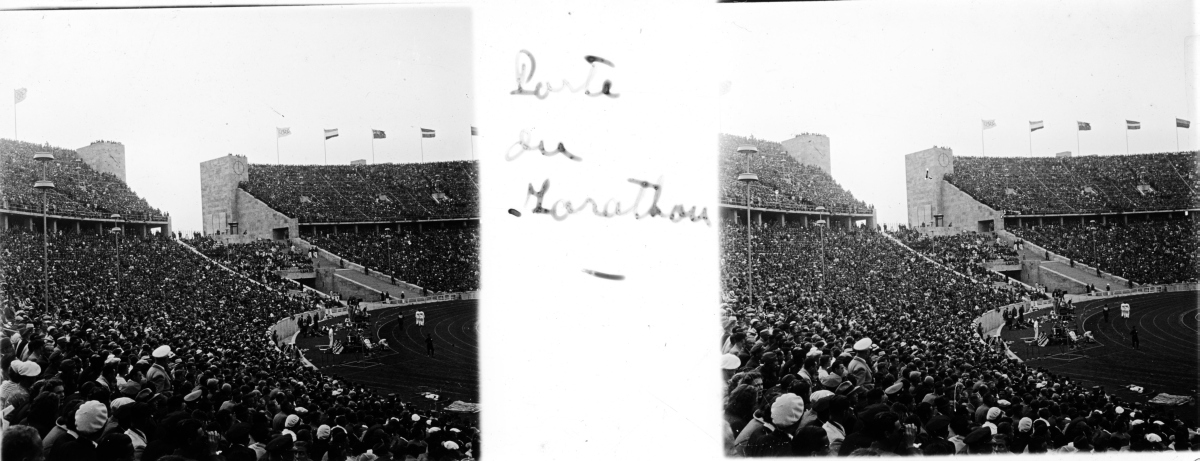 Porte
du
Marathon